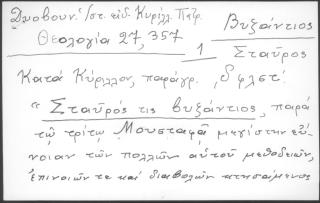 Δυοβουν. /στ. εἰδ. Κυρίλλ. Πατρ. Βυζάντιος
Θεολογία 27, 357 1 Σταῦρος
Κατὰ Κύριλλον, παράγρ. ,δφλστ!
"Σταῦρός τις βυζάντιος, παρὰ
τῷ τρίτῳ Μουσταφᾷ μεγίστην εὔ-
νοιαν τῶν πολλῶν αὐτοῦ μεθοδειῶν,
ἐπινοιῶν τε καὶ διαβολῶν κτησάμενος